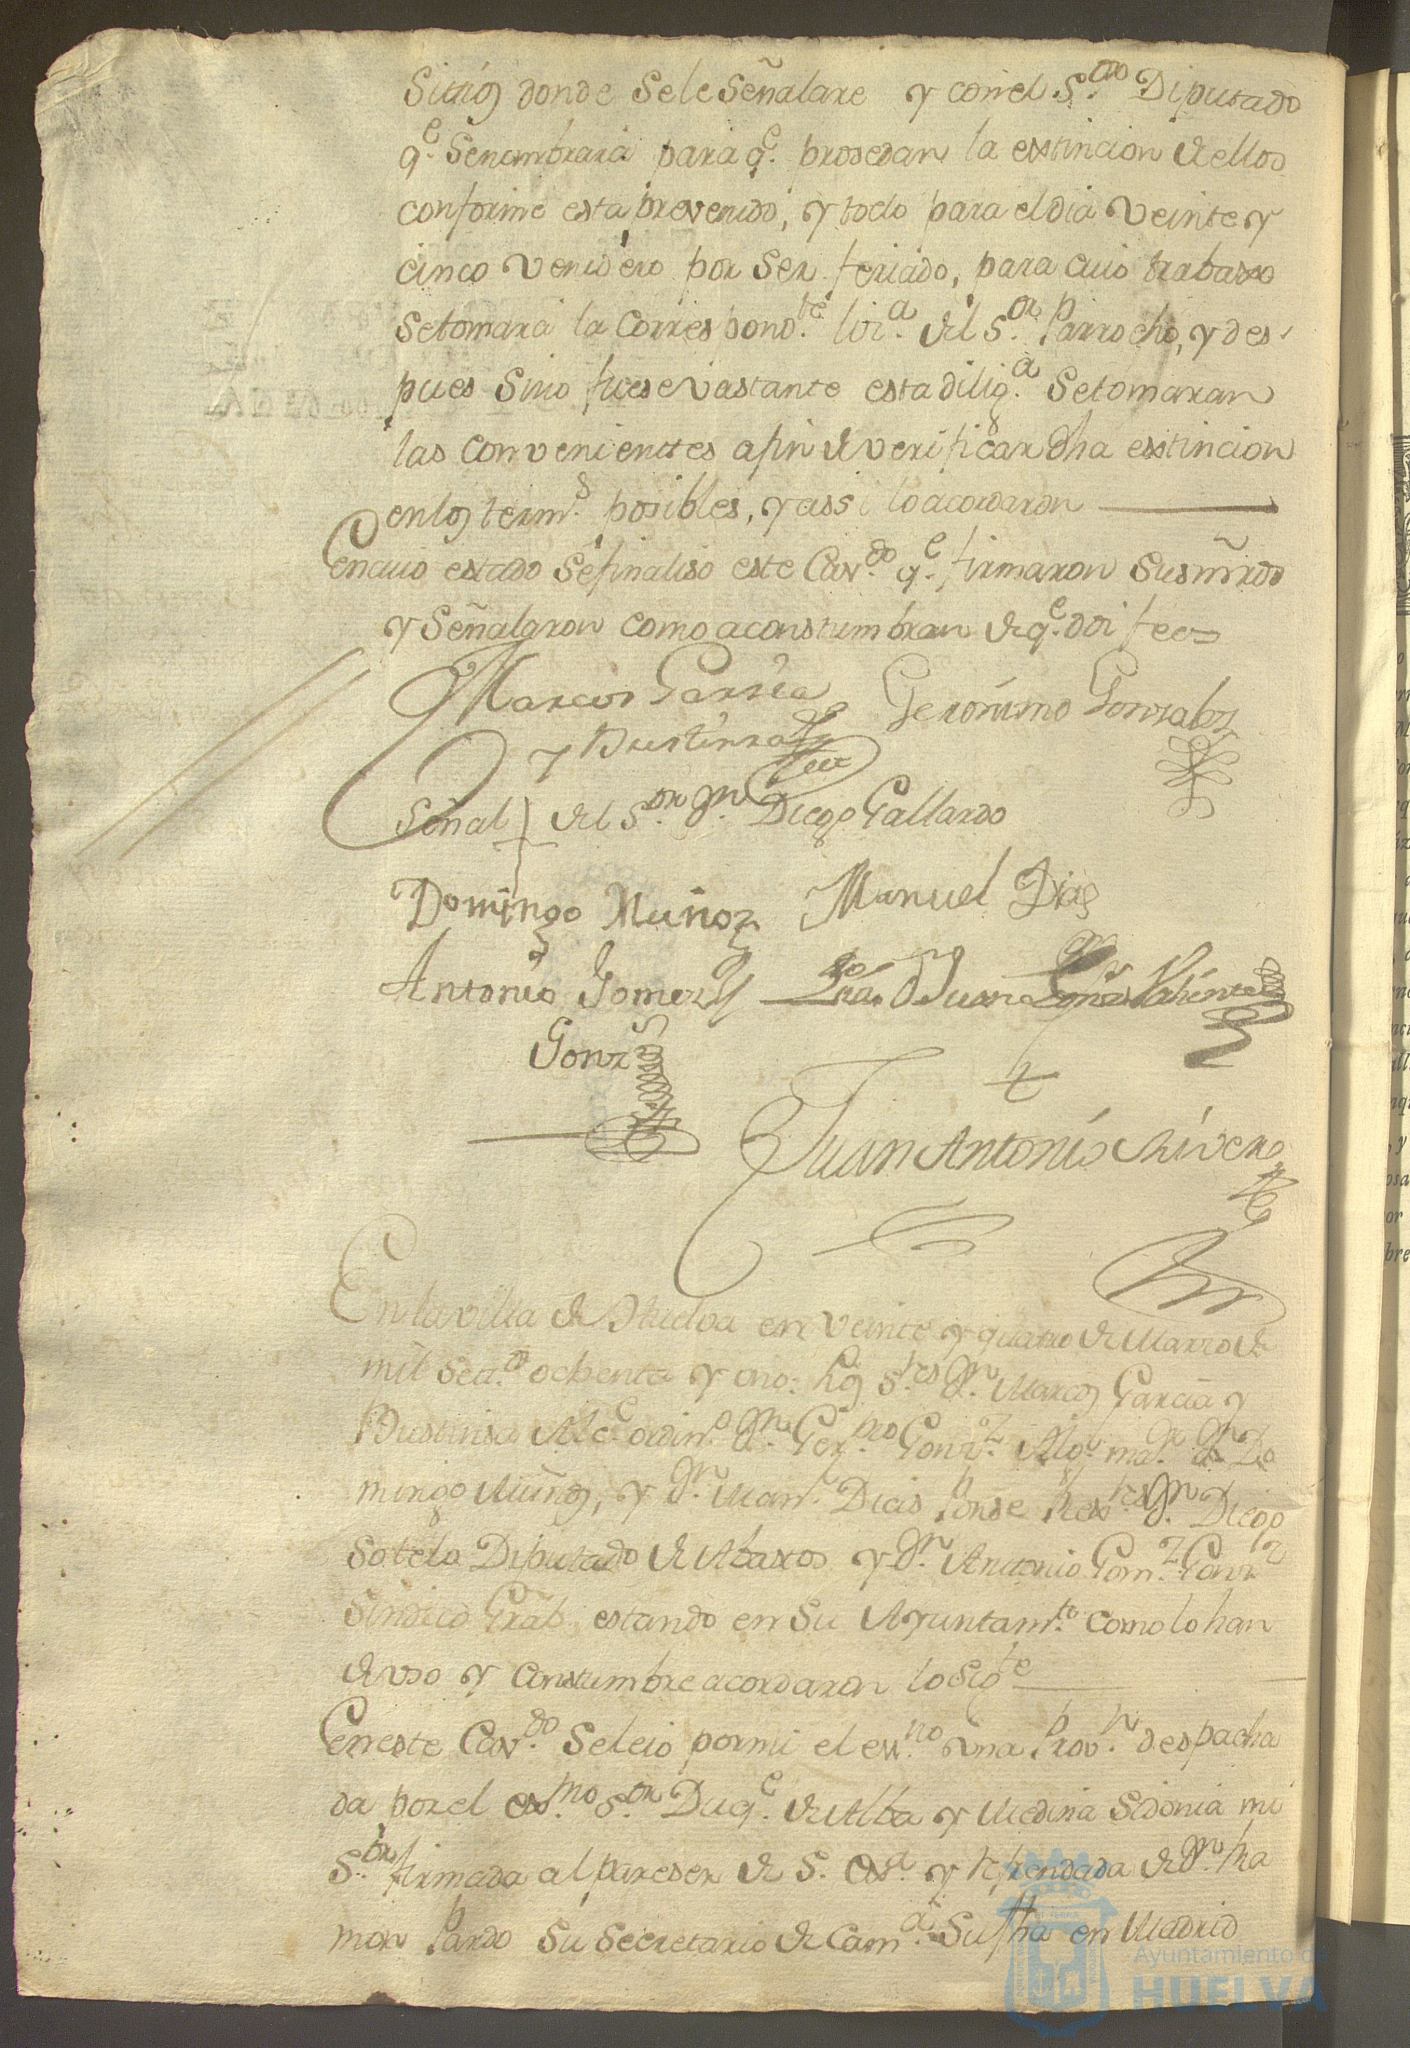 Sitios donde Se le Señalare y con el S.or Diputado
q.e Se nombrara para q.e prosedan la exstincion de ellos
conforme esta prevenido, y todo para el dia Veinte y
cinco venidero por Ser feriado, para cuio trabaxo
Se tomará la Correspond.te liz.a del S.or Parrocho, y des-
pues Sino fuese vastante esta dilig.a Se tomaran
las convenienttes a fin de verificar dha exstincion
en los term.s posibles, y assi lo acordaron
En cuio estado Se finaliso este Cav.do q.e firmaron Sus mrds
y Señalaron como aconstumbran de q.e doi fee=
Marcos Garsia Geronimo Gonzales
y Bustinza
Señal del S.or Dn. Diego Gallardo
Domingo Muñoz Manuel Dias
Antonio Gomez Juan Gomez Valiente
Gonz
Juan Antonio Rivero
En la villa de Huelva en veinte y quatro de Marzo de
mil Setz.os ochenta y uno: los S.res Dn. Marcos Garcia y
Bustinsa Alc.e ordin.o Dn. Ger.mo Gonz.z Alg.l ma.r Dn. Do
mingo Muños, y Dn. Man.l Dias Ponse Rex.res Dn. Diego
Sotelo Diputado de Abastos y Dn. Antonio Gom.z Gonz.z
Sindico Gral, estando en Su Ayuntam.to como lo han
de uso y Constumbre acordaron lo Sig.te
En este Cav.do Se leio por mi el ess.no una Prov.n despacha
da por el ex.mo S.or Duq.e de Alba y Medina Sidonia mi
S.or firmada al pareser de S. ex.a y refrendada de Dn. Ra
mon Pardo Su Secretario de Cam.a Su fha en Madrid
Ayuntamiento de
HUELVA